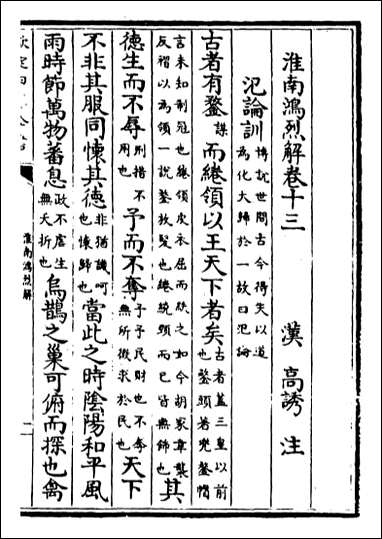 淮南鴻烈解卷十三 漢 高誘 注
氾論訓博說世間古今得失以道為化大歸於一故曰氾論
古者有鍪謀而綣領以王天下者矣古者蓋三皇以前也鍪頭著兜鍪帽
言未知制冠也綣領皮衣屈而紩之如今胡家韋襲反褶以為領一說鍪放髮也綣繞頸而已皆無飾也其
德生而不辱刑措不用也予而不奪予予民財也不奪無所徵求於民也天下
不非其服同懷其德非猶譏呵也懷歸也當此之時陰陽和平風
雨時節萬物蕃息政不虐生無夭折也烏鵲之巢可俯而探也禽
淮南鴻烈解
二